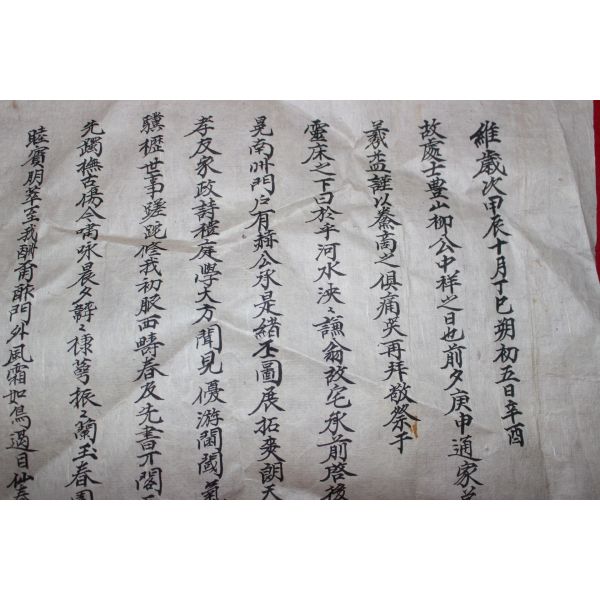 維歲次甲辰十月丁巳朔初五日辛酉
故處士豊山柳公中祥之日也前夕庚申通家
羲益謹以泰高之俱痛哭再拜敬祭于
靈床之下曰於乎河水泱泱謙翁故宅承前啓後
晃南州門戶有赫公承是緖丕圖展拓爽朗天
孝友家政詩禮庭學大方聞見優游閫閾氣
驥櫪世事蹉跎修我初服西疇春及先書丌閣
先躅撫古傷今嘯咏晨夕韡韡棣萼振振蘭玉春
睦賓朋萃至我酬甫酢門外風霜如鳥過目仙